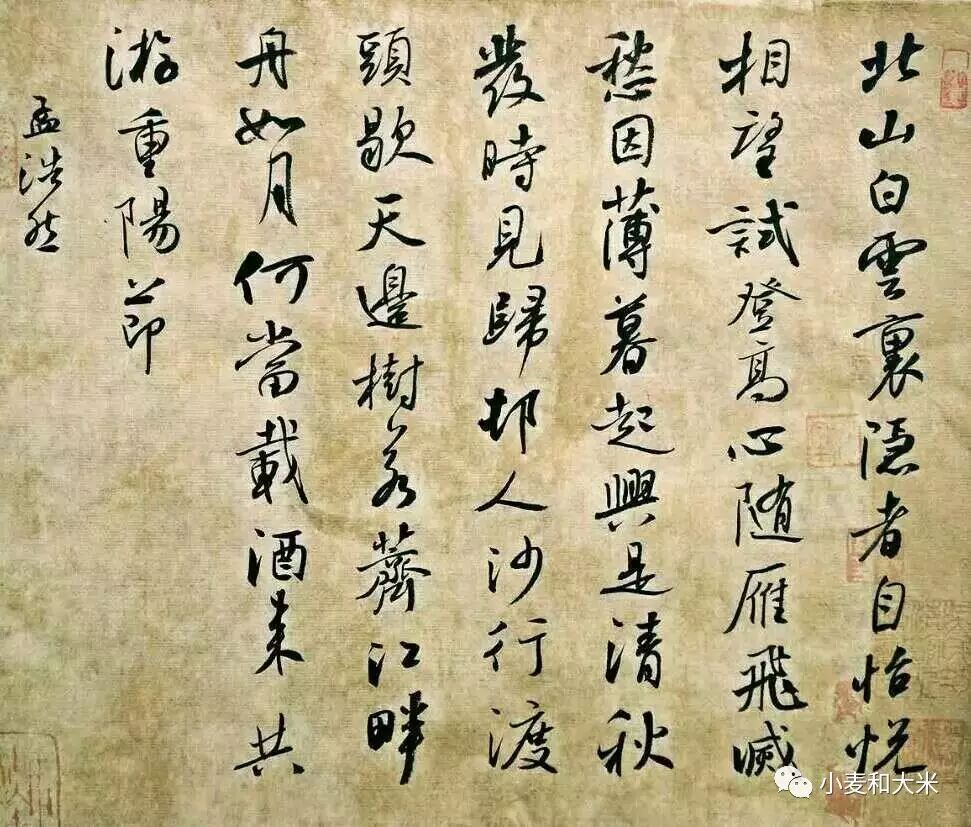 北山白雲裏隐者自怡悦
相望試登高心随雁飛滅
愁因薄暮起興是清秋
發時見歸邨人沙行渡
頭歇天邊樹若薺江畔
舟如月何當載酒来共
游重陽節
孟浩然
小麦和大米